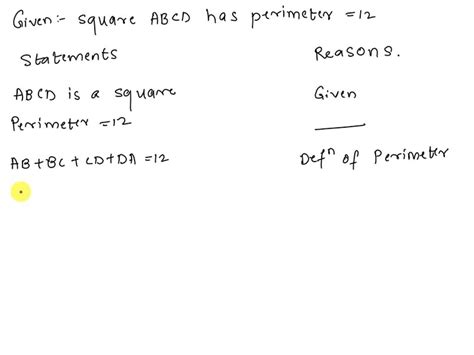 Given:- square ABCD has perimeter =12
Statements Reasons.
ABCD is a square Given
Perimeter =12
AB+BC+CD+DA =12 Defn of Perimeter